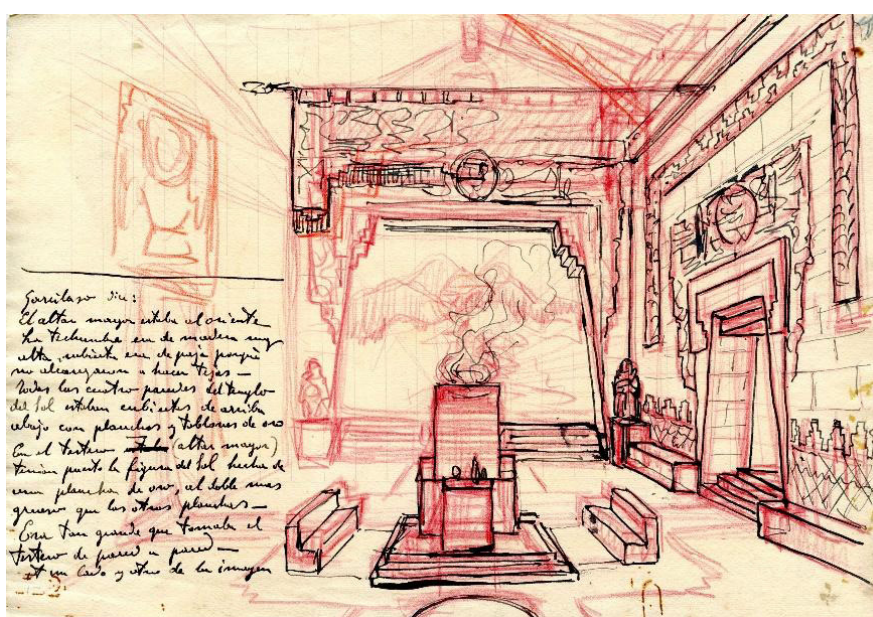 Garcilaso dice:
El altar mayor estaba al oriente
La techumbre era de madera muy
alta, cubierta era de paja porque
no alcanzaron a hacer tejas —
Todas las cuatro paredes del templo
del Sol estaban cubiertas de arriba
abajo con planchas y tablones de oro
En el testero (altar mayor)
tenían puesto la figura del Sol hecha de
una plancha de oro, al doble más
grueso que las otras planchas —
Era tan grande que tomaba el
testero de pared a pared —
A un lado y otro de la imagen